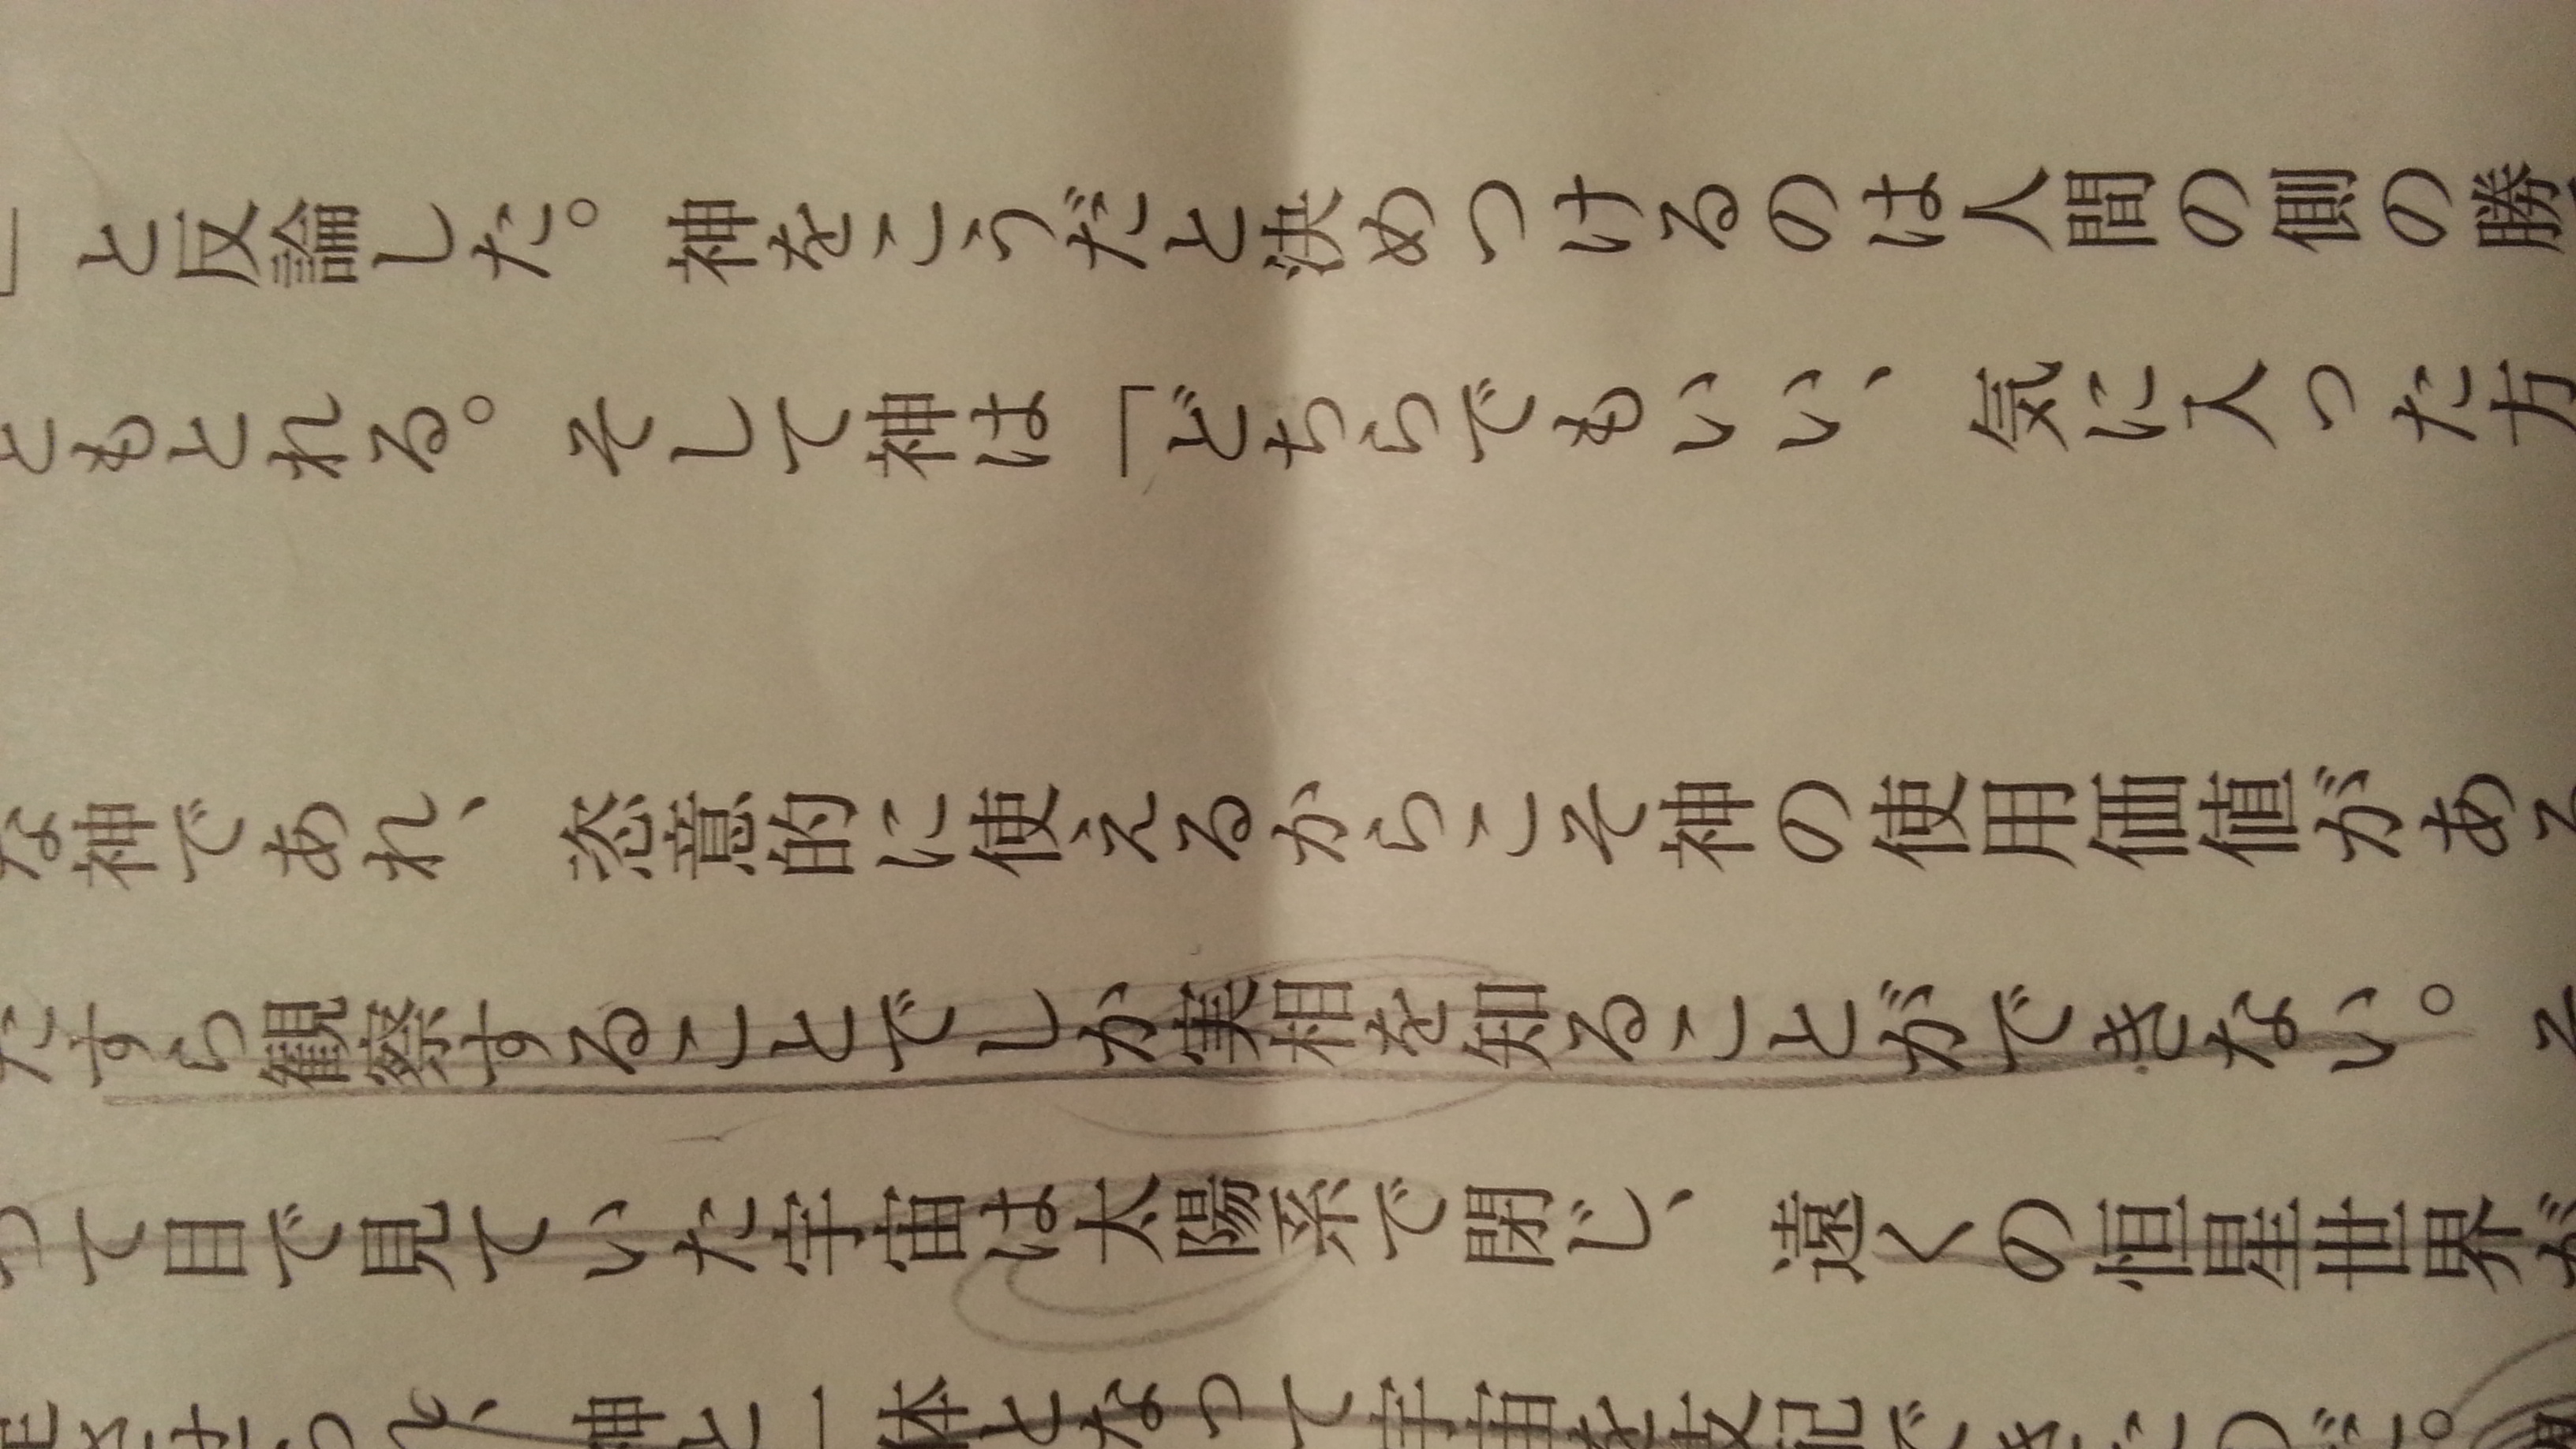 」と反論した。神をこうだと決めつけるのは人間の側の勝
ともとれる。そして神は「どちらでもいい、気に入った方
な神であれ、恣意的に使えるからこそ神の使用価値がある
たすら観察することでしか実相を知ることができない。そ
って目で見ていた宇宙は太陽系で閉じ、遠くの恒星世界が
神と一体となって宇宙を支配できたのだ。